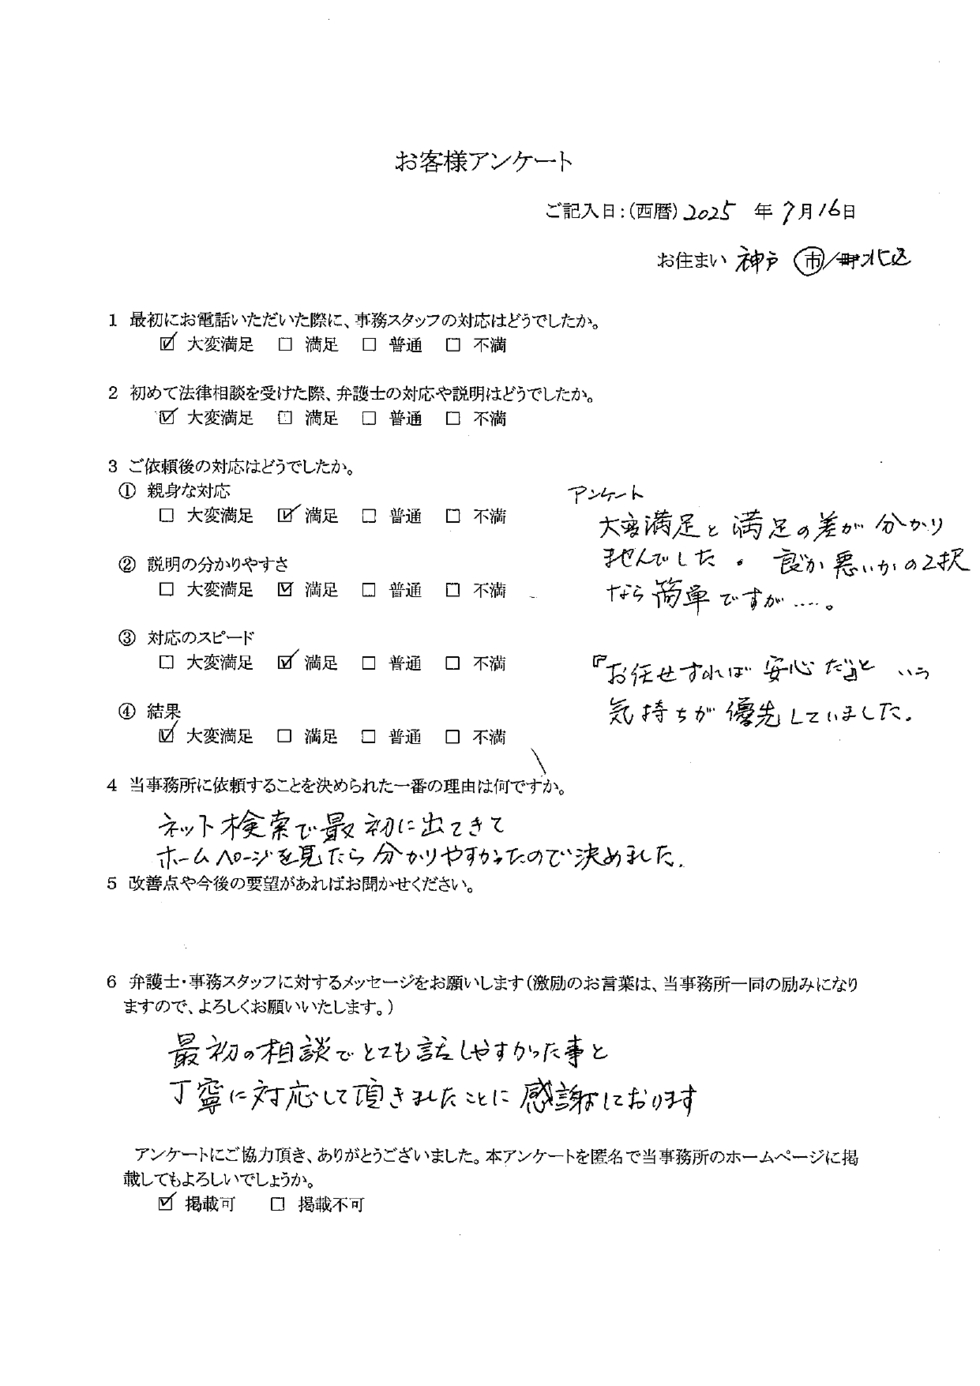 お客様アンケート
ご記入日:(西暦)2025 年 7月16日
お住まい 神戸 市/町北区
1 最初にお電話いただいた際に、事務スタッフの対応はどうでしたか。
☑ 大変満足 □ 満足 □ 普通 □ 不満
2 初めて法律相談を受けた際、弁護士の対応や説明はどうでしたか。
☑ 大変満足 □ 満足 □ 普通 □ 不満
3 ご依頼後の対応はどうでしたか。
① 親身な対応
□ 大変満足 ☑ 満足 □ 普通 □ 不満
② 説明の分かりやすさ
□ 大変満足 ☑ 満足 □ 普通 □ 不満
③ 対応のスピード
□ 大変満足 ☑ 満足 □ 普通 □ 不満
④ 結果
☑ 大変満足 □ 満足 □ 普通 □ 不満
アンケート
大変満足と満足の差が分かり
ませんでした。良か悪いかの2択
なら簡単ですが……。
『お任せすれば安心だ』という
気持ちが優先していました。
4 当事務所に依頼することを決められた一番の理由は何ですか。
ネット検索で最初に出てきて
ホームページを見たら分かりやすかったので決めました。
5 改善点や今後の要望があればお聞かせください。
6 弁護士・事務スタッフに対するメッセージをお願いします(激励のお言葉は、当事務所一同の励みになり
ますので、よろしくお願いいたします。)
最初の相談でとても話しやすかった事と
丁寧に対応して頂きましたことに感謝しております
アンケートにご協力頂き、ありがとうございました。本アンケートを匿名で当事務所のホームページに掲
載してもよろしいでしょうか。
☑ 掲載可 □ 掲載不可